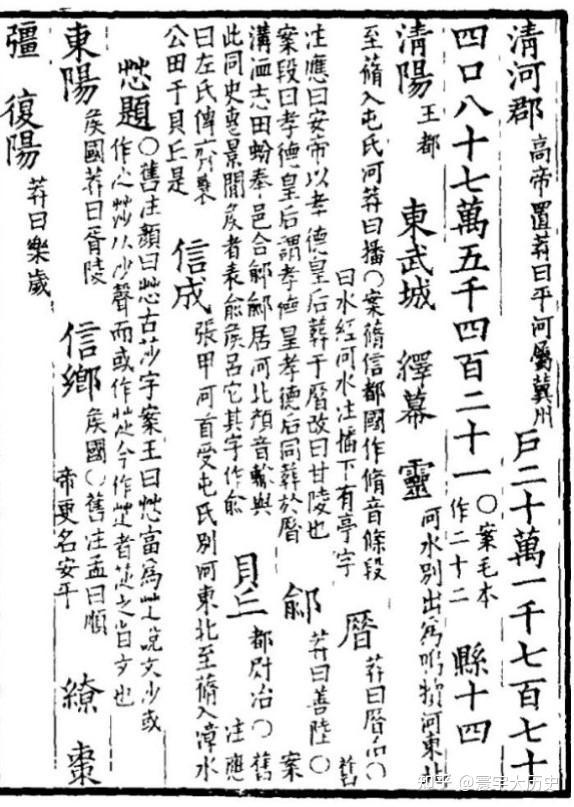 清河郡 高帝置莽曰平河屬冀州 戶二十萬一千七百七十
四口八十七萬五千四百二十一 ○案毛本作二十二 縣十四
清陽 王都 東武城 繹幕 靈 河水別出爲鳴犢河東北
至蓨入屯氏河莽曰播○案蓨信都國作脩音條段曰水經河水注播下有亭字 厝 莽曰厝治○舊
注應曰安帝以孝德皇后葬于厝故曰甘陵也案段曰孝德皇后謂孝德皇孝德后同葬於厝 鄃 莽曰善陸○案
溝洫志田蚡奉邑合鄃鄃居河北顏音輸與此同史惠景間矦者表俞矦呂它其字作俞 貝丘 都尉治○舊注應
曰左氏傳齊襄公田于貝丘是 信成 張甲河首受屯氏別河東北至蓨入漳水
題 ○舊注顏曰 古莎字案王曰 當爲 說文沙或作 从沙聲而或作 今作 者 之省文也
東陽 矦國莽曰胥陵 信鄉 矦國○舊注孟曰順帝更名安平 繚 棗
彊 復陽 莽曰樂歲
知乎 @寰宇大历史